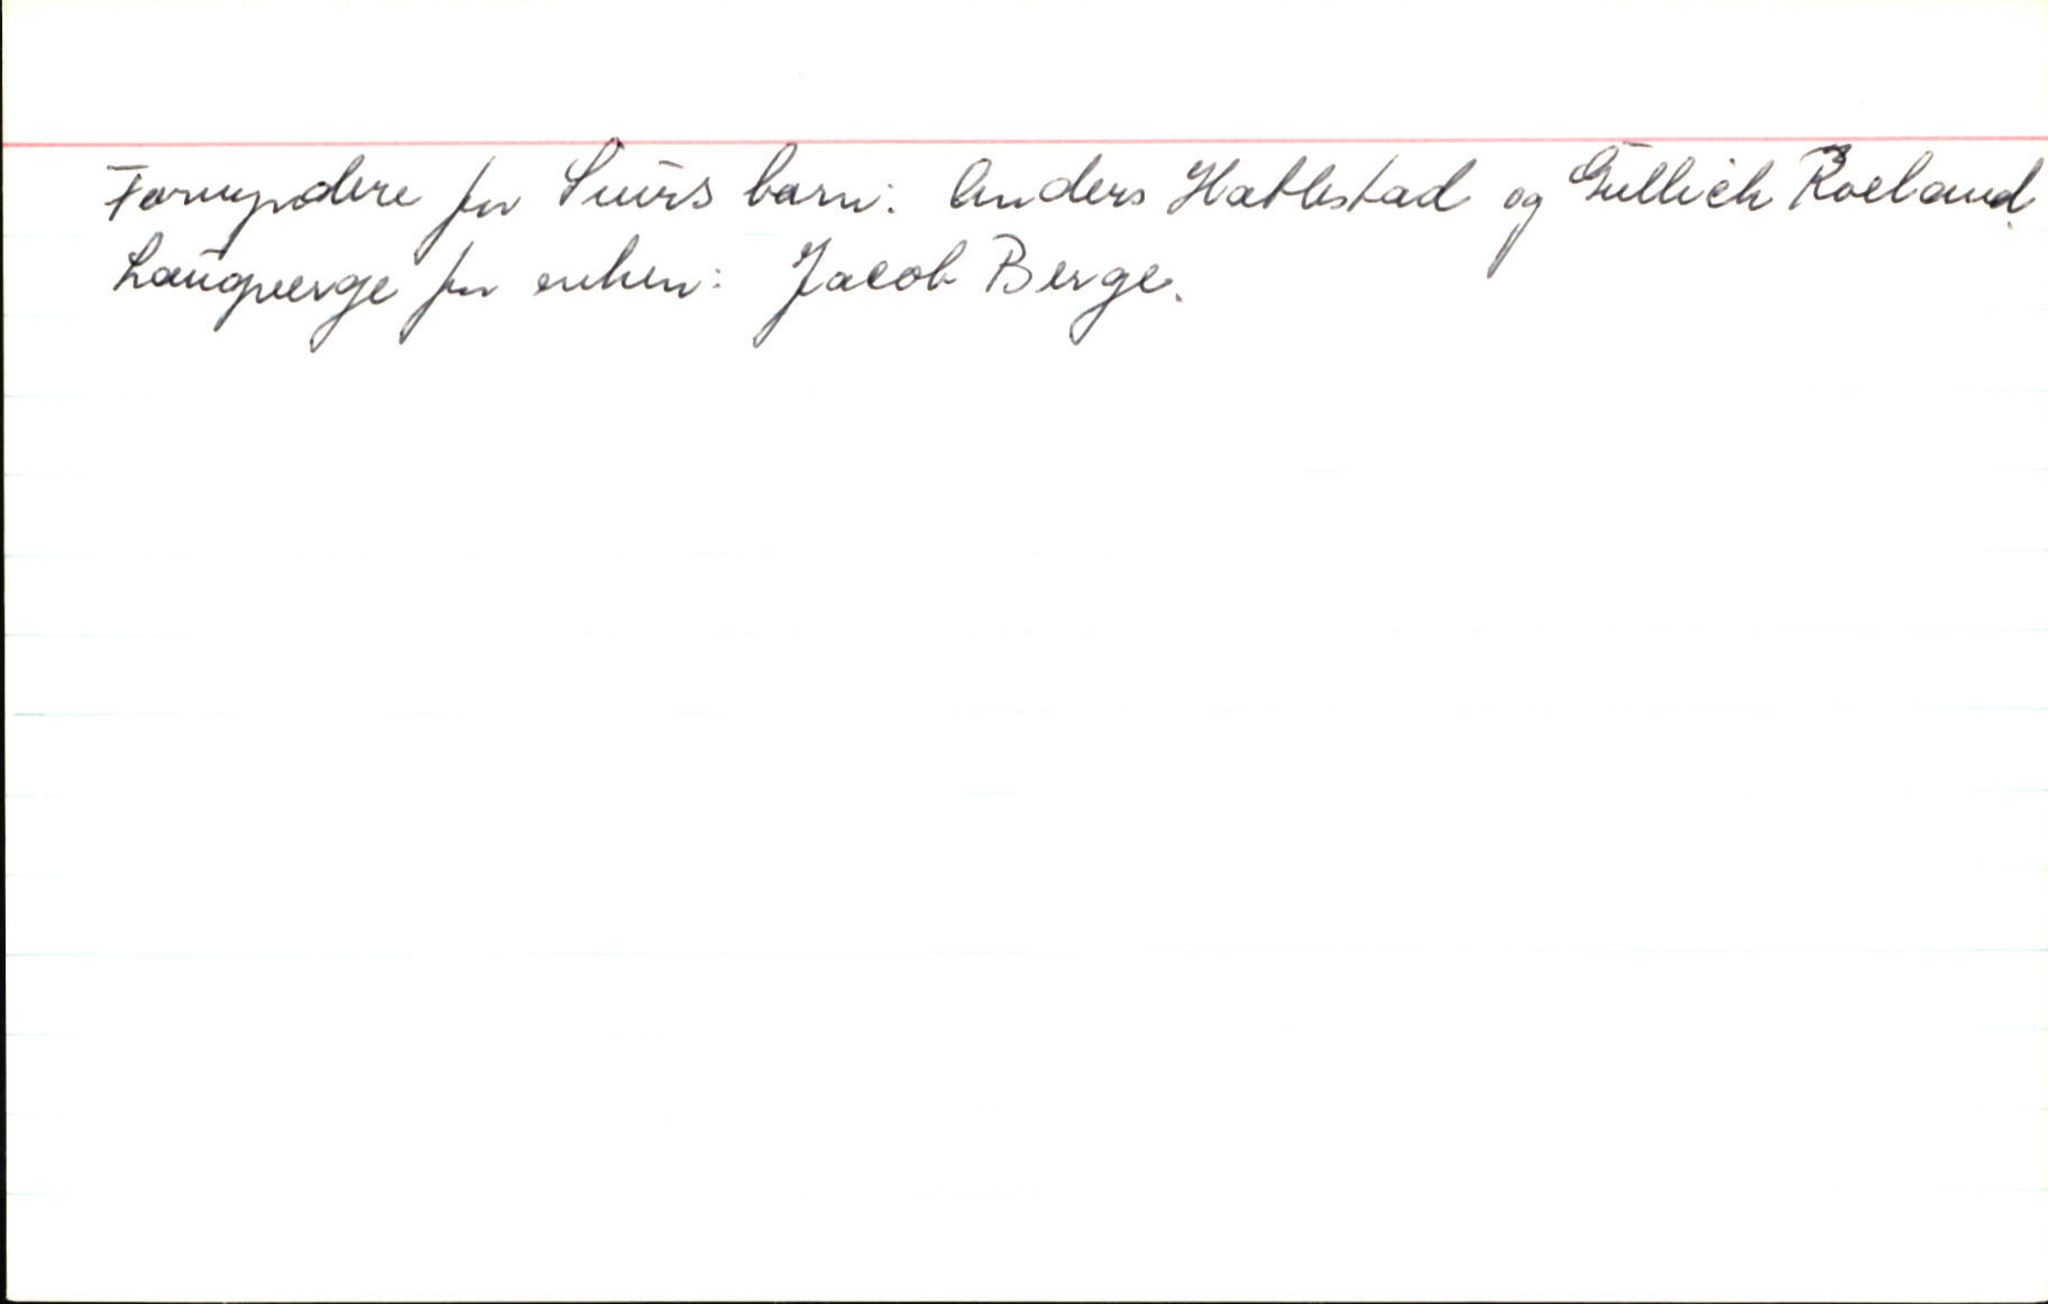 Formyndere for Siurs barn: Anders Hatlestad og Gullich Roeland.
Laugverge for enken: Jacob Berge.